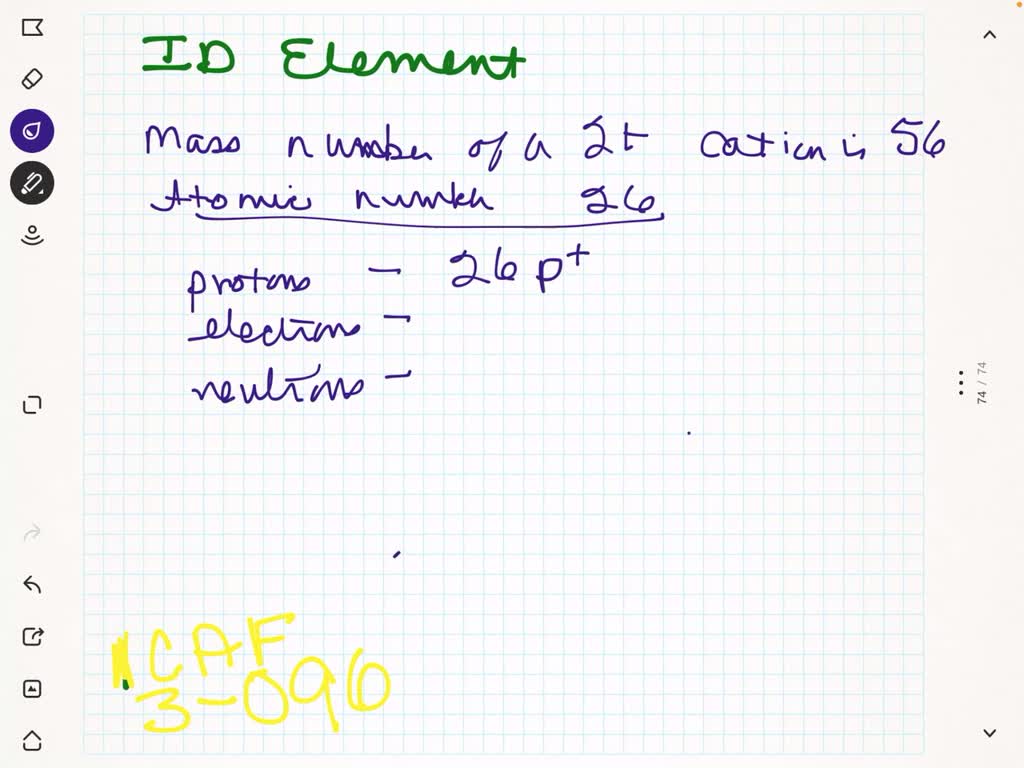 ID Element
Mass number of a 2+ cation is 56
Atomic number 26
protons - 26 p+
electrons -
neutrons -
CAF
3-096
74 / 74